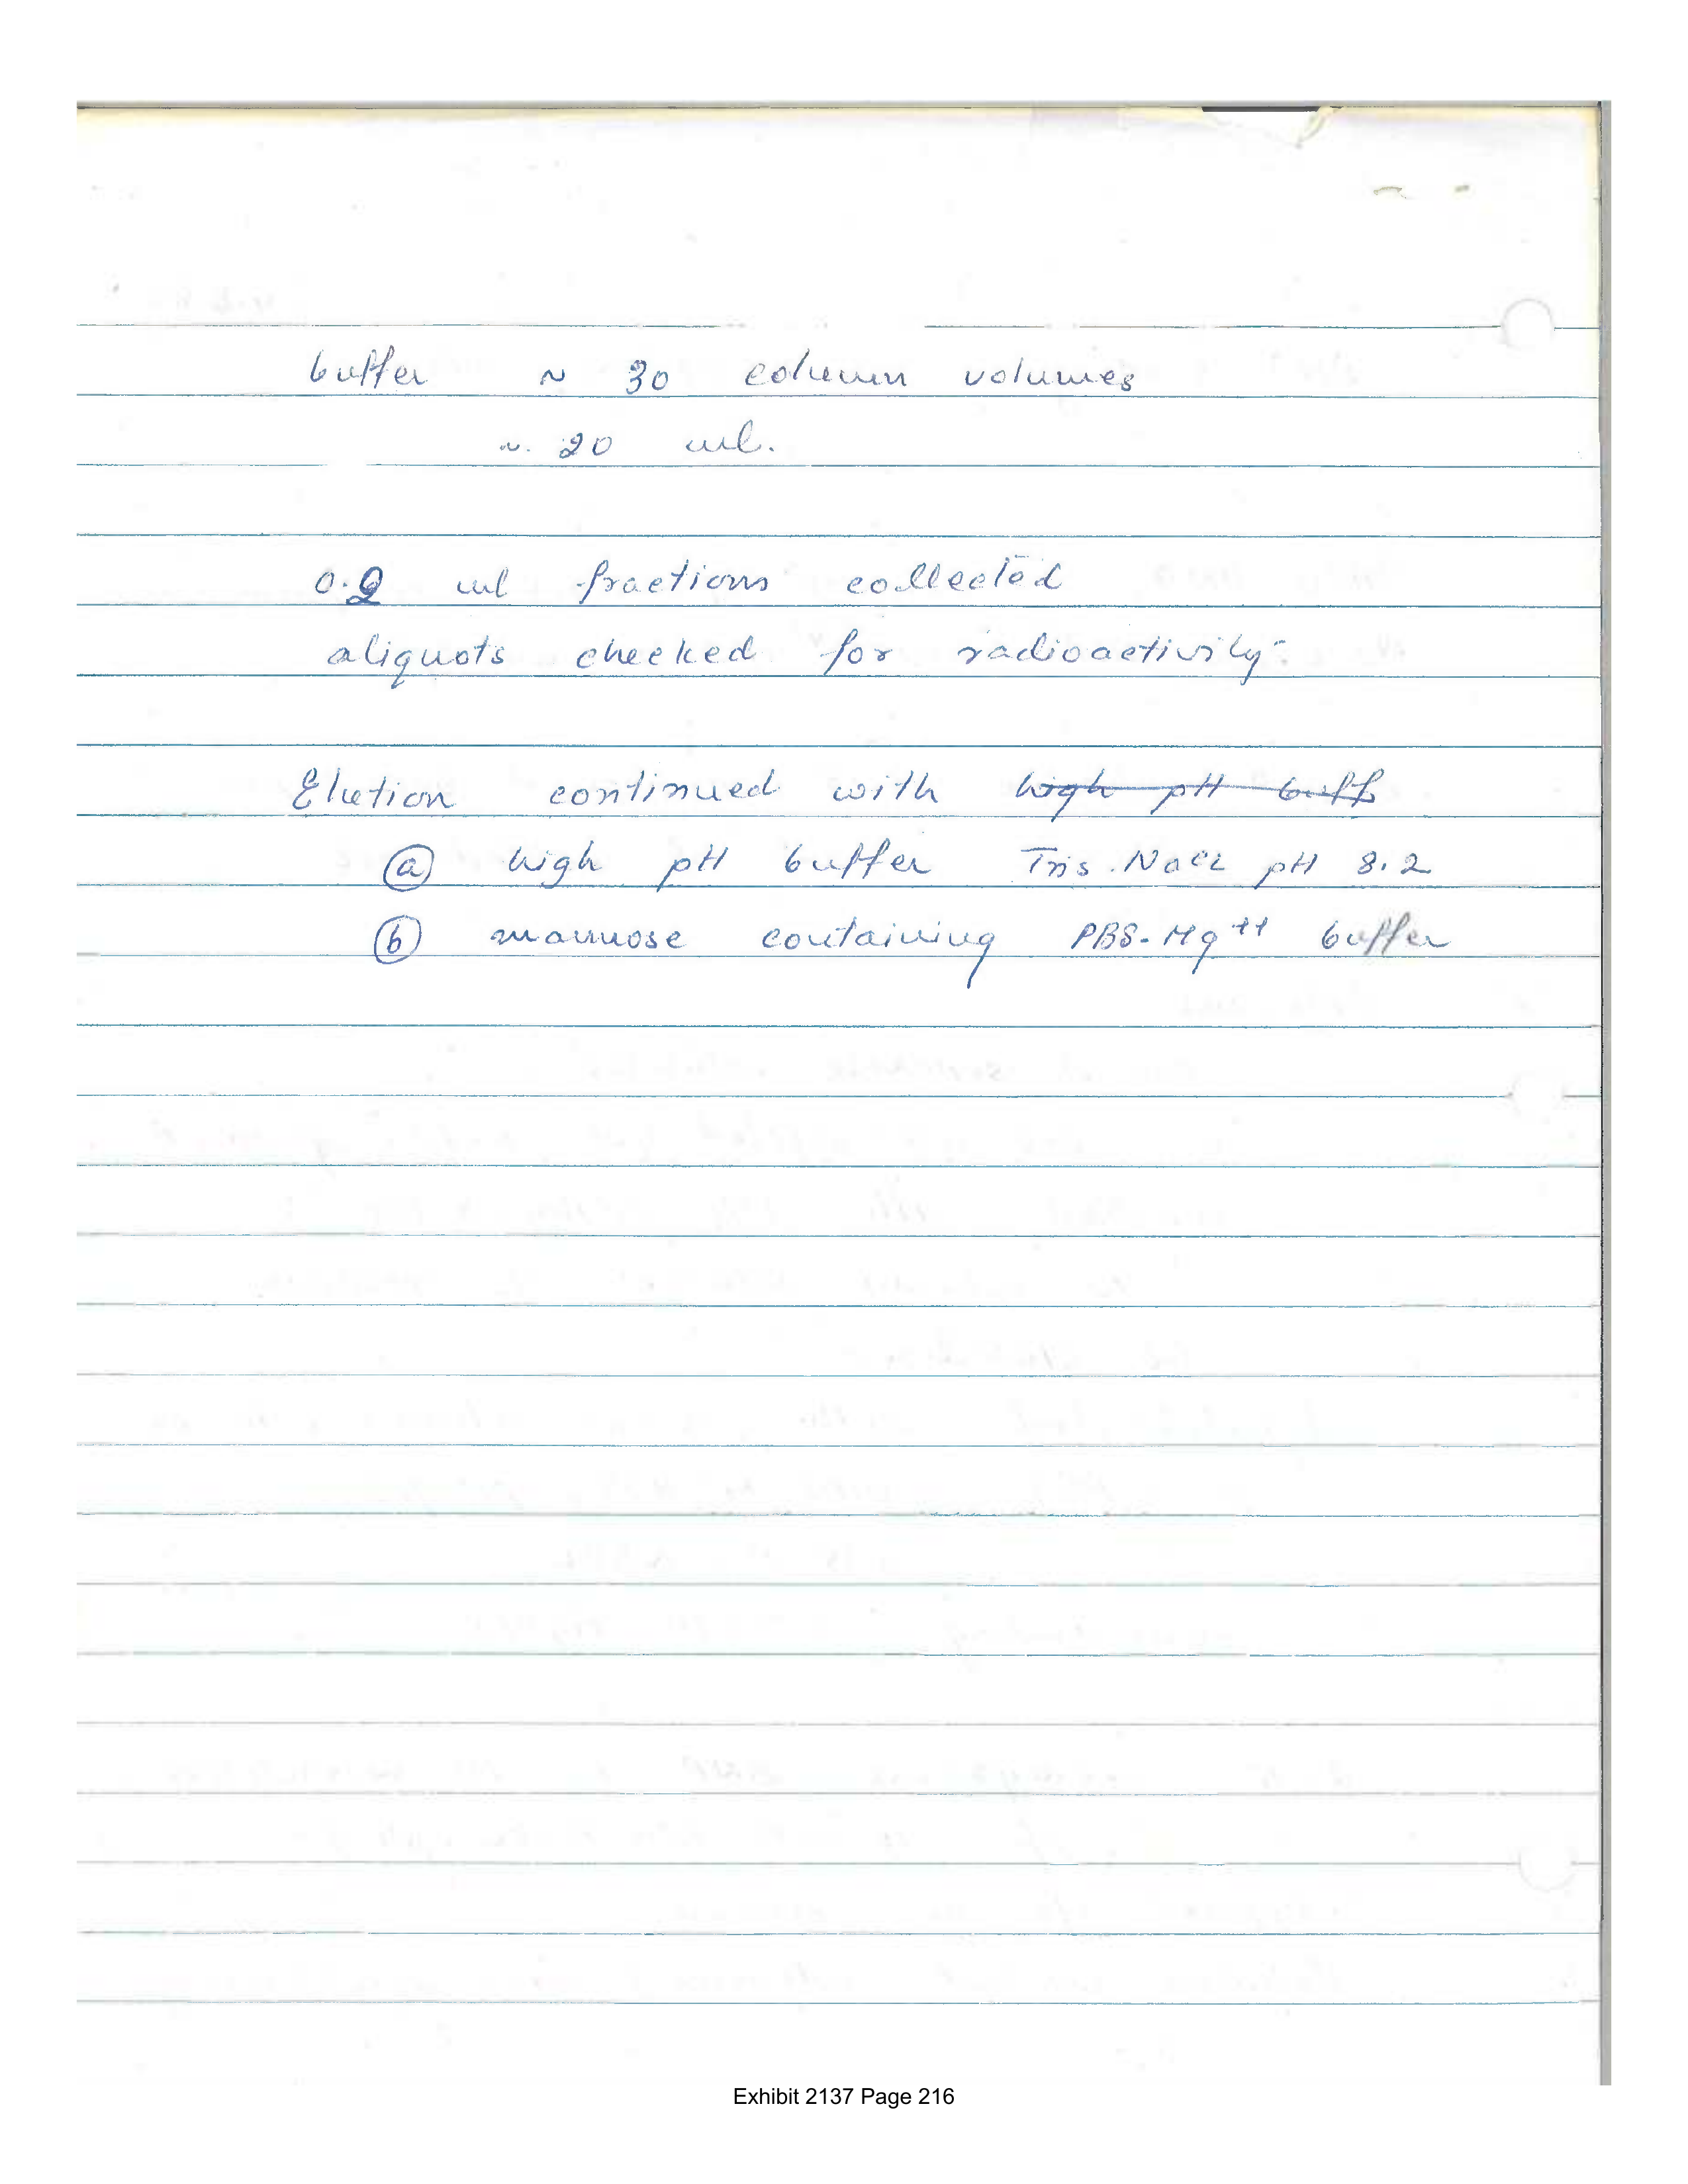 buffer ~ 30 column volumes
~ 20 ml.
0.2 ml fractions collected
aliquots checked for radioactivity
Elution continued with high pH buff
(a) high pH buffer Tris.NaCl pH 8.2
(b) mannose containing PBS-Mg++ buffer
Exhibit 2137 Page 216